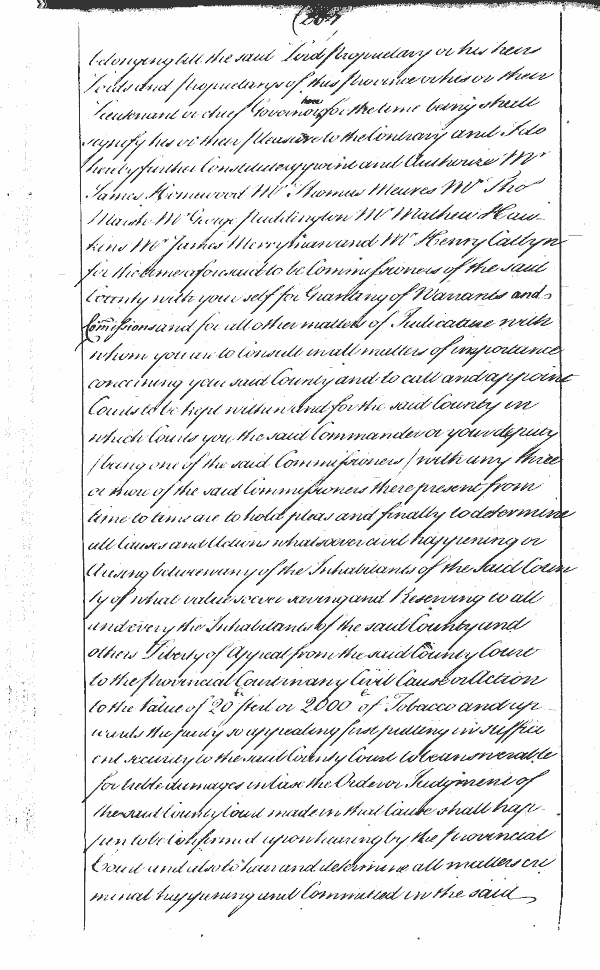 (207
belonging till the said Lord Proprietary or his heirs
Lords and Proprietarys of this Province or his or their
Lieutenant or chief Governor here for the time being shall
signify his or their pleasure to the Contrary and I do
hereby further Constitute appoint and Authorize Mr
James Homewood Mr Thomas Meares Mr Tho
Marsh Mr George Puddington Mr Mathew Haw
kins Mr James Merryman and Mr Henry Catlyn
for the time aforesaid to be Commissioners of the said
County with your self for Granting of Warrants and
Comissions and for all other matters of Judicature with
whom you are to Consult in all matters of importance
concerning your said County and to call and appoint
Courts to be kept within and for the said County in
which Courts you the said Commander or your deputy
/ being one of the said Commissioners / with any three
or more of the said Commissioners there present from
time to time are to hold pleas and finally to determine
all Causes and Actions whatsoever civil happening or
Arising between any of the Inhabitants of the said Coun
ty of what value soever saving and Reserving to all
and every the Inhabitants of the said County and
others Liberty of Appeal from the said County Court
to the Provincial Court in any Civil Cause or Action
to the Value of 20£ sterl or 2000£ of Tobacco and up
wards the party so appealing first putting in suffici
ent security to the said County Court to be answerable
for treble damages in Case the Order or Judgment of
the said County Court made in that Cause shall hap
pen to be Confirmed upon hearing by the Provincial
Court and also to hear and determine all matters cri
minal happening and Committed in the said